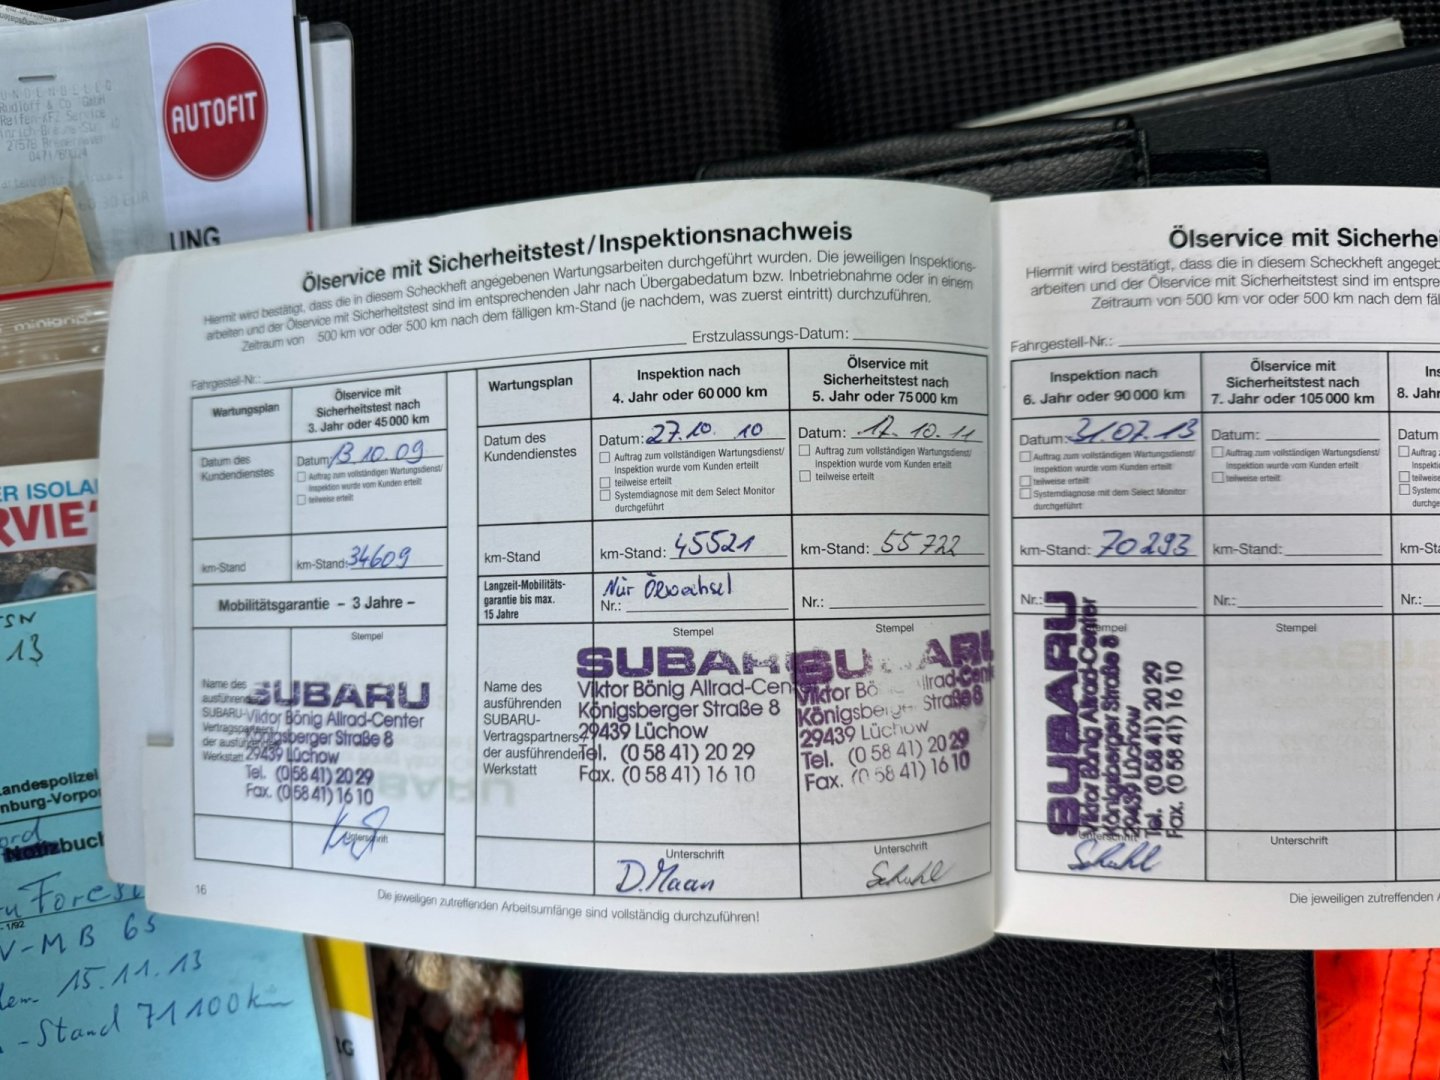 Rudloff & Co. GmbH
Reifen-KFZ Service
0471/
AUTOFIT
UNG
minigrip
ER ISOLA
RVIE
13
andespolizei
nburg-Vorpo
Notizbuch
Fores
- 1/92
V-MB 65
15.11.13
-Stand 71100km
Ölservice mit Sicherheitstest/Inspektionsnachweis
Hiermit wird bestätigt, dass die in diesem Scheckheft angegebenen Wartungsarbeiten durchgeführt wurden. Die jeweiligen Inspektions-
arbeiten und der Ölservice mit Sicherheitstest sind im entsprechenden Jahr nach Übergabedatum bzw. Inbetriebnahme oder in einem
Zeitraum von 500 km vor oder 500 km nach dem fälligen km-Stand (je nachdem, was zuerst eintritt) durchzuführen.
Fahrgestell-Nr.: Erstzulassungs-Datum:
Wartungsplan
Ölservice mit
Sicherheitstest nach
3. Jahr oder 45 000 km
Datum des
Kundendienstes
Datum: 13.10.09
Auftrag zum vollständigen Wartungsdienst/
Inspektion wurde vom Kunden erteilt
teilweise erteilt
km-Stand
km-Stand: 34609
Mobilitätsgarantie – 3 Jahre –
Stempel
Name des
ausführenden
SUBARU-
Vertragspartners
der ausführenden
Werkstatt
SUBARU
Viktor Bönig Allrad-Center
Königsberger Straße 8
29439 Lüchow
Tel. (0 58 41) 20 29
Fax. (0 58 41) 16 10
Unterschrift
16
Wartungsplan
Inspektion nach
4. Jahr oder 60 000 km
Datum des
Kundendienstes
Datum: 27.10.10
Auftrag zum vollständigen Wartungsdienst/
Inspektion wurde vom Kunden erteilt
teilweise erteilt
Systemdiagnose mit dem Select Monitor
durchgeführt
km-Stand
km-Stand: 45521
Langzeit-Mobilitäts-
garantie bis max.
15 Jahre
Nur Ölwechsel
Nr.:
Stempel
Name des
ausführenden
SUBARU-
Vertragspartners
der ausführenden
Werkstatt
SUBARU
Viktor Bönig Allrad-Cen
Königsberger Straße 8
29439 Lüchow
Tel. (0 58 41) 20 29
Fax. (0 58 41) 16 10
Unterschrift
D. Maan
Ölservice mit
Sicherheitstest nach
5. Jahr oder 75 000 km
Datum: 17.10.11
Auftrag zum vollständigen Wartungsdienst/
Inspektion wurde vom Kunden erteilt
teilweise erteilt
km-Stand: 55722
Nr.:
Stempel
SUBARU
Viktor Bö llrad-Cent
Königsber Straße 8
29439 Lüchow
Tel. (0 58 41) 20 29
Fax. (0 58 41) 16 10
Unterschrift
Schuhl
Die jeweiligen zutreffenden Arbeitsumfänge sind vollständig durchzuführen!
Ölservice mit Sicherhei
Hiermit wird bestätigt, dass die in diesem Scheckheft angegeb
arbeiten und der Ölservice mit Sicherheitstest sind im entspre
Zeitraum von 500 km vor oder 500 km nach dem fäl
Fahrgestell-Nr.:
Inspektion nach
6. Jahr oder 90 000 km
Datum: 31.07.13
Auftrag zum vollständigen Wartungsdienst/
Inspektion wurde vom Kunden erteilt
teilweise erteilt
Systemdiagnose mit dem Select Monitor
durchgeführt
km-Stand: 70293
Nr.:
Stempel
SUBARU
Viktor Bönig Allrad-Center
Königsberger Straße 8
29439 Lüchow
Tel. (0 58 41) 20 29
Fax. (0 58 41) 16 10
Unterschrift
Schuhl
Ölservice mit
Sicherheitstest nach
7. Jahr oder 105 000 km
Datum:
Auftrag zum vollständigen Wartungsdienst/
Inspektion wurde vom Kunden erteilt
teilweise erteilt
km-Stand:
Nr.:
Stempel
Unterschrift
Ins
8. Jahr
Datum
Auf
Inspe
teilweise
Systemd
durchge
km-Sta
Nr.:
Die jeweiligen zutreffenden A